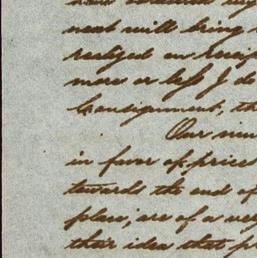 next will bring
realized on receip
more or less I do
Consignment, th
Our
in favor of prices
towards the end of
plan, are of a ver
their idea that pr